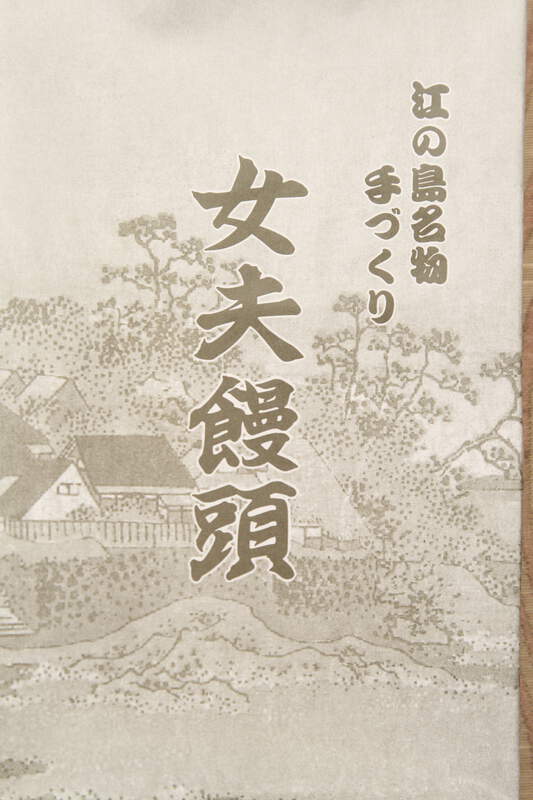 江の島名物
手づくり
女夫饅頭